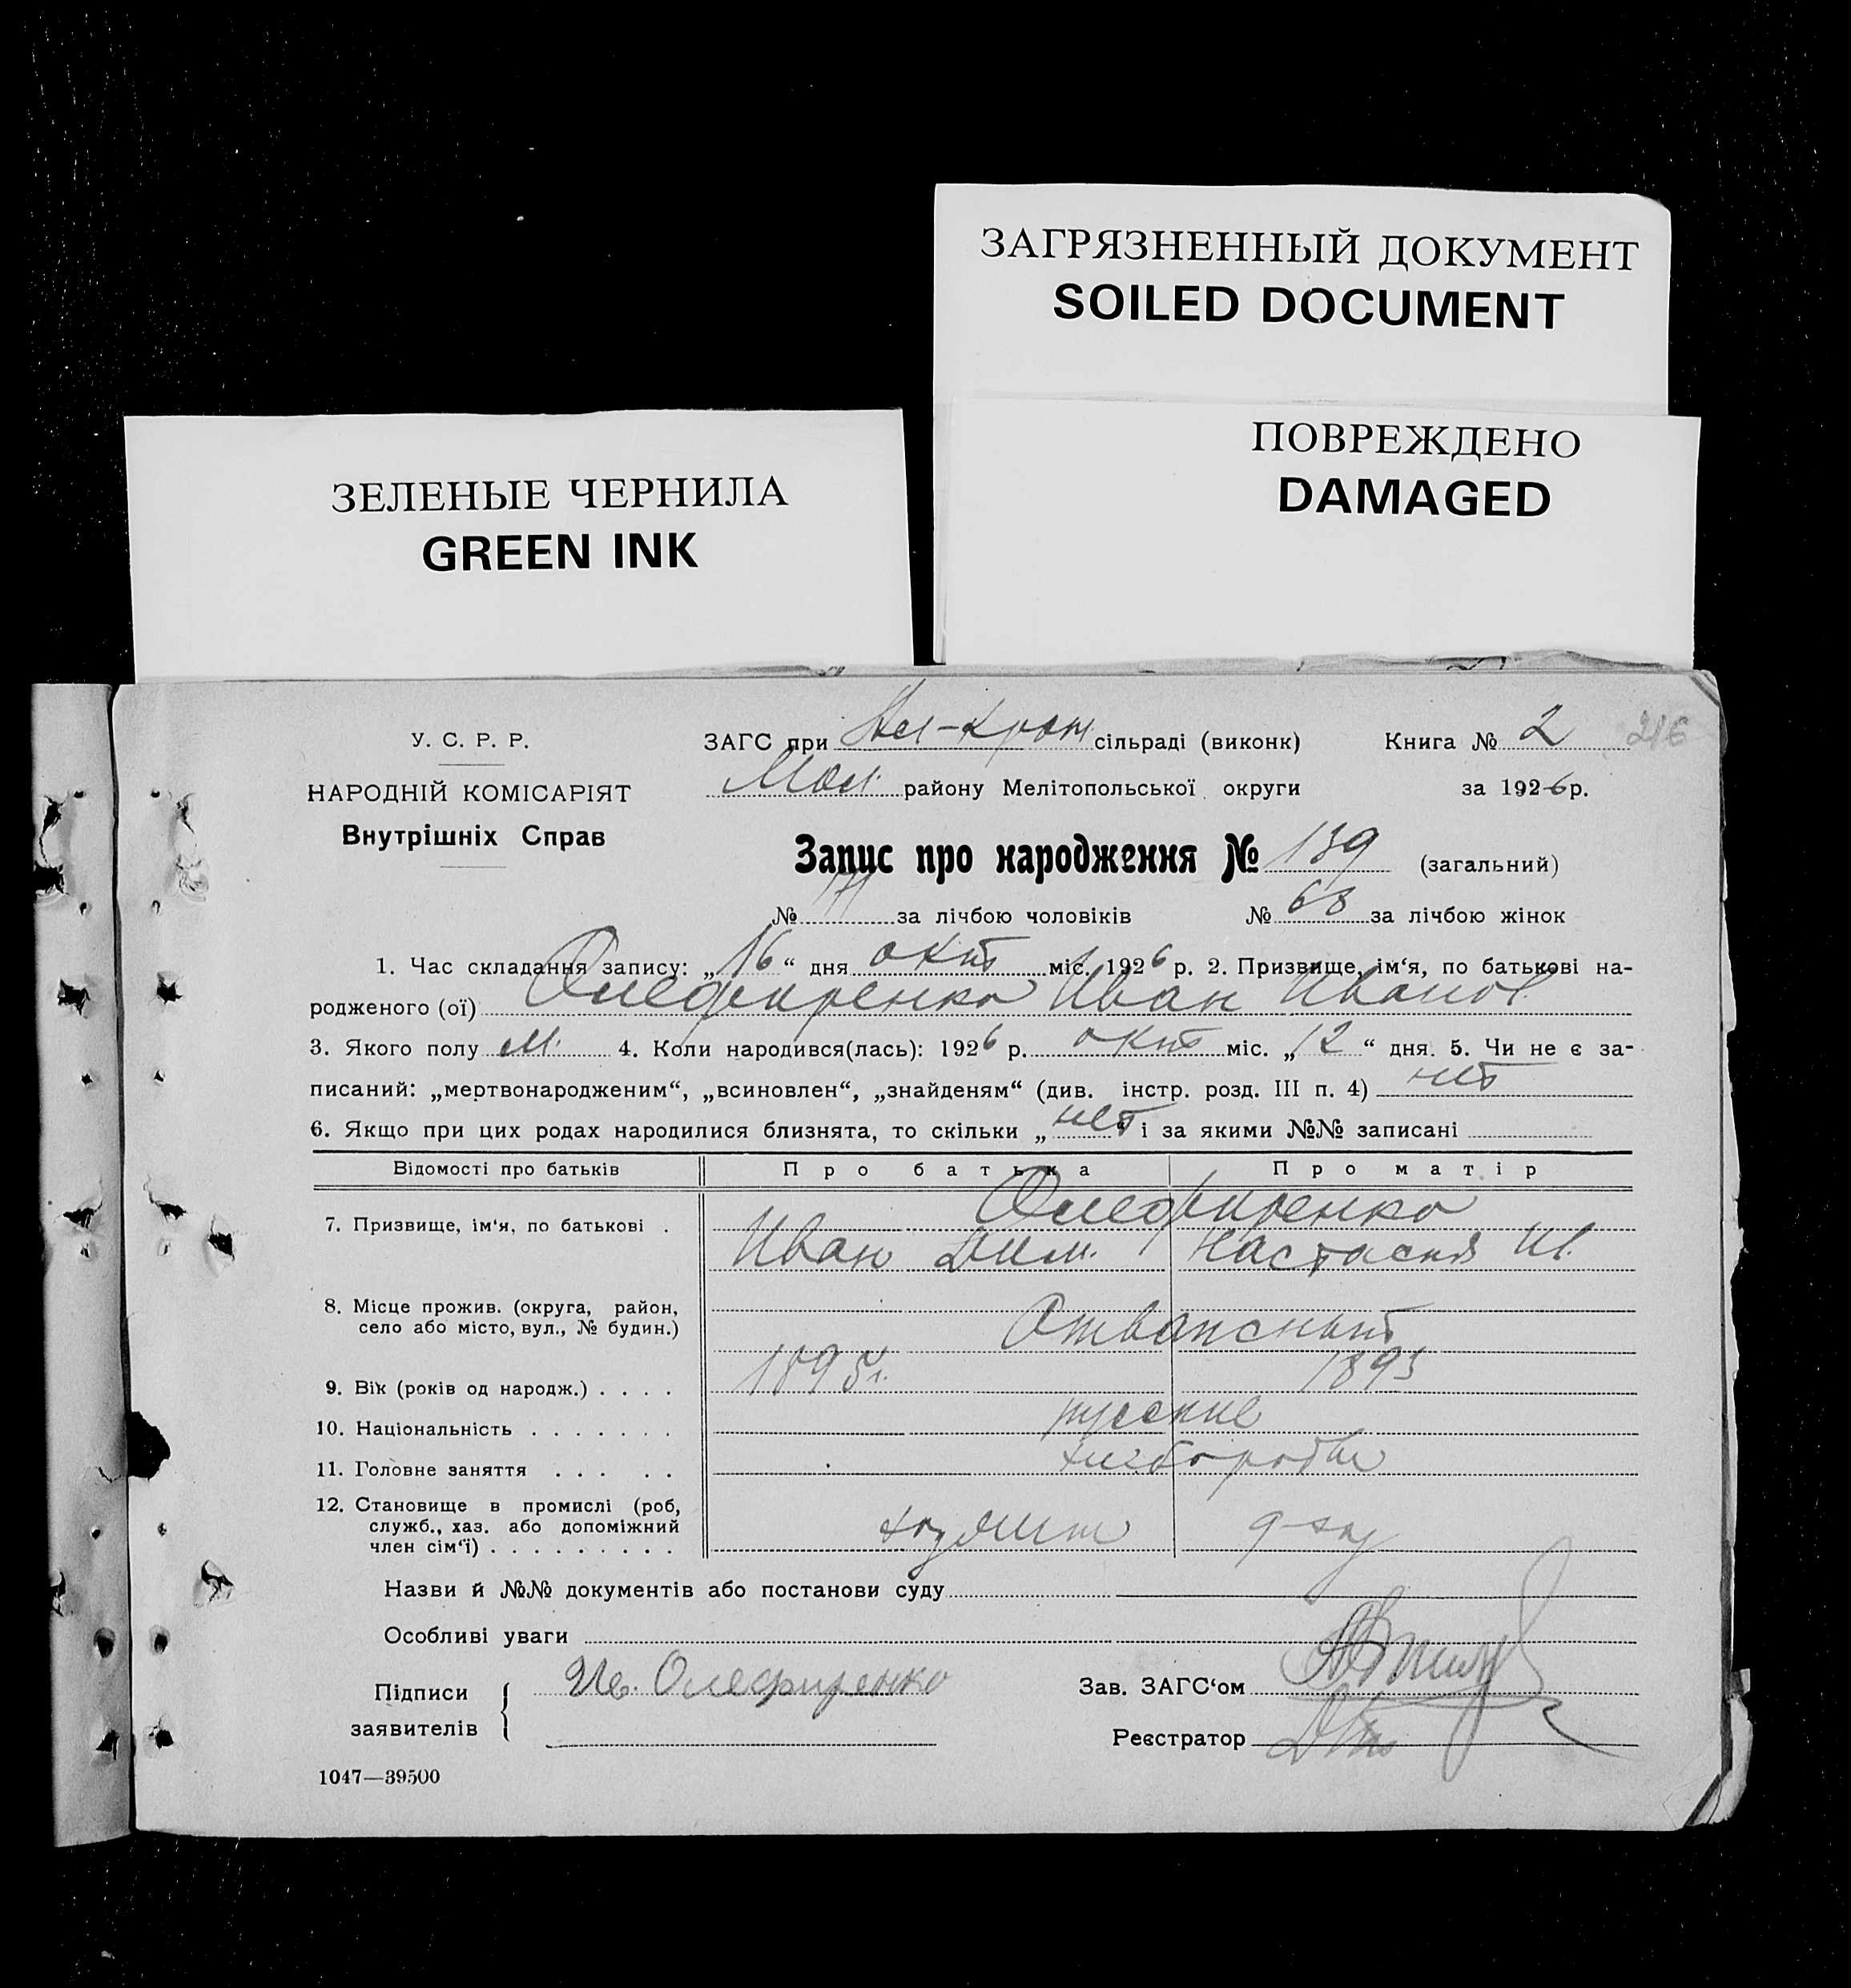 ЗАГРЯЗНЕННЫЙ ДОКУМЕНТ
SOILED DOCUMENT
ПОВРЕЖДЕНО
DAMAGED
ЗЕЛЕНЫЕ ЧЕРНИЛА
GREEN INK
У. С. Р. Р.
НАРОДНІЙ КОМІСАРІЯТ
Внутрішніх Справ
ЗАГС при сільраді (виконк) Книга № 2 216
району Мелітопольської округи за 1926 р.
Запис про народження № 139 (загальний)
№ 71 за лічбою чоловіків № 68 за лічбою жінок
1. Час складання запису: „16“ дня окт міс. 1926 р. 2. Призвище, ім‘я, по батькові на-
родженого (ої) Олефиренко Иван Иванов.
3. Якого полу м. 4. Коли народився(лась): 1926 р. окт міс. „12“ дня. 5. Чи не є за-
писаний: „мертвонародженим“, „всиновлен“, „знайденям“ (див. інстр. розд. III п. 4) нет
6. Якщо при цих родах народилися близнята, то скільки „нет“ і за якими №№ записані
Відомості про батьків Про батька Про матір
7. Призвище, ім‘я, по батькові . Олефиренко
Иван Дим. Настасия Ив.
8. Місце прожив. (округа, район,
село або місто, вул., № будин.)
9. Вік (років од народж.) . . . . 1895г. 1895
10. Національність . . . . . . . русские
11. Головне заняття . . . . . хлебороды
12. Становище в промислі (роб,
служб., хаз. або допоміжний
член сім‘ї) . . . . . . . . .
Назви й №№ документів або постанови суду
Особливі уваги
Підписи
заявителів
Ив. Олефиренко
Зав. ЗАГС‘ом
Реєстратор
1047—39500